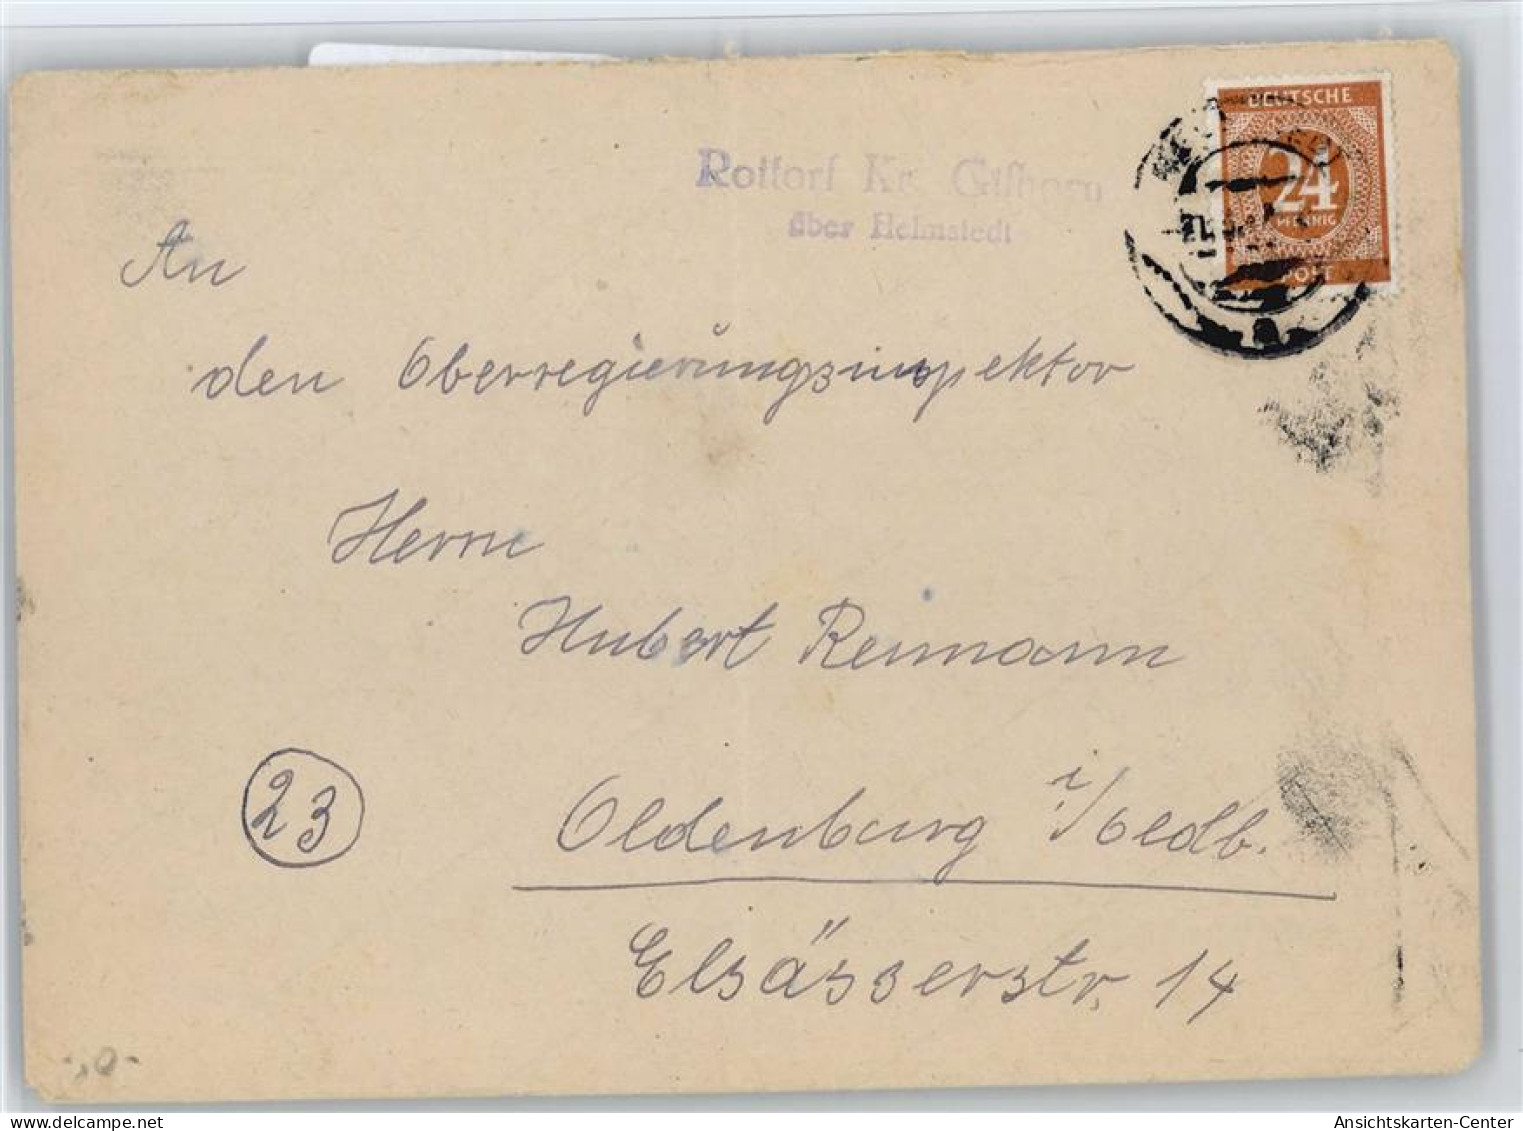 DEUTSCHE
24
PFENNIG
POST
Rottorf Kr. Gifhorn
über Helmstedt
An
den Oberregierungsinspektor
Herrn
Hubert Reimann
23
Oldenburg i/Oldb.
Elsässerstr. 14
delcampe.net
Ansichtskarten-Center